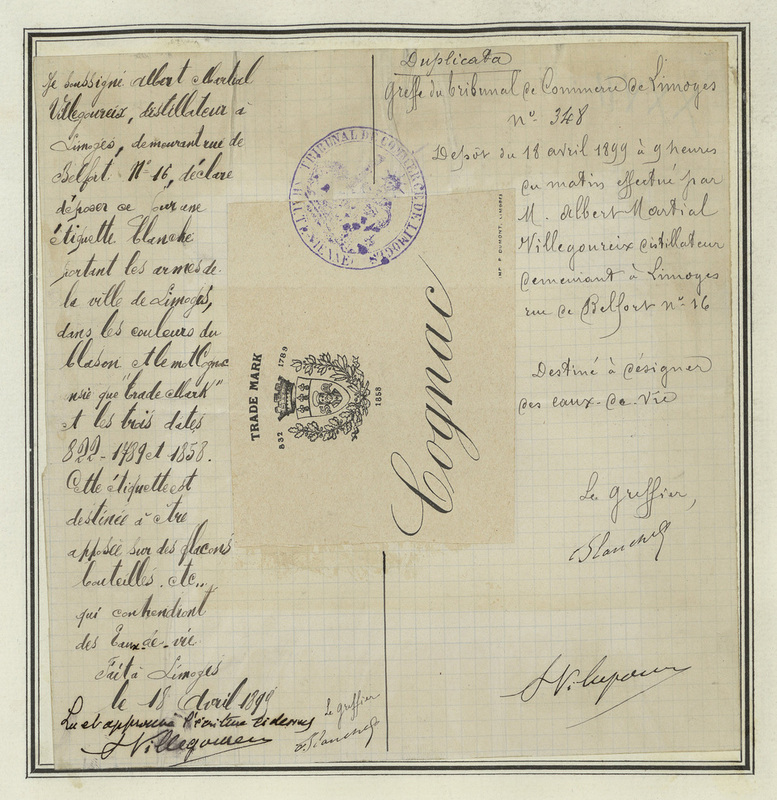 Je soussigné Albert Martial
Villegoureix, distillateur à
Limoges, demeurant rue de
Belfort. N° 16, déclare
déposer ce jour une
étiquette blanche
portant les armes de
la ville de Limoges,
dans les couleurs du
blason et le mot Cognac
nsie que "trade Mark"
et les trois dates
822 - 1789 et 1858.
Cette étiquette est
destinée à être
apposée sur des flacons
bouteilles. etc..
qui contiendront
des Eaux-de-vie
Fait à Limoges
le 18 Avril 1899
Lu et approuvé l'écriture ci-dessus
Villegoureix
Le greffier
TRIBUNAL DE COMMERCE DE LIMOGES
VIENNE
TRADE MARK
832
1789
1858
Cognac
IMP. P. DUMONT, LIMOGES
Duplicata
Greffe du tribunal de Commerce de Limoges
N° 348
Depôt du 18 avril 1899 à 9 heures
du matin effectué par
M. Albert Martial
Villegoureix distillateur
demeurant à Limoges
rue de Belfort n° 16
Destiné à désigner
des eaux-de-vie
Le greffier,